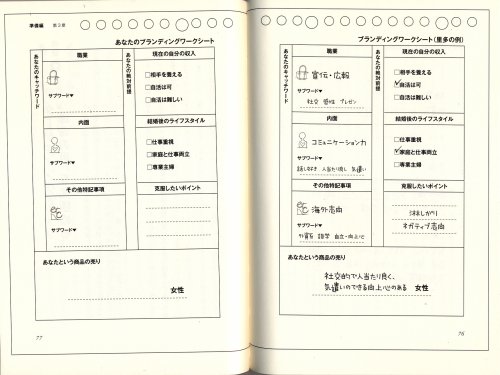 ブランディングワークシート(里多の例)
あなたのキャッチワード
職業
宣伝・広報
サブワード▼
社交 感性 プレゼン
内面
コミュニケーション力
サブワード▼
話し好き 人当たり良し 気遣い
その他特記事項
海外志向
サブワード▼
外資系 語学 自立・向上心
あなたの絶対前提
現在の自分の収入
□相手を養える
☑自活は可
□自活は難しい
結婚後のライフスタイル
□仕事重視
☑家庭と仕事両立
□専業主婦
克服したいポイント
淋しがり
ネガティブ志向
あなたという商品の売り
社交的で人当たり良く、
気遣いのできる向上心のある 女性
76
準備編 第3章
あなたのブランディングワークシート
あなたのキャッチワード
職業
サブワード▼
内面
サブワード▼
その他特記事項
サブワード▼
あなたの絶対前提
現在の自分の収入
□相手を養える
□自活は可
□自活は難しい
結婚後のライフスタイル
□仕事重視
□家庭と仕事両立
□専業主婦
克服したいポイント
あなたという商品の売り
女性
77